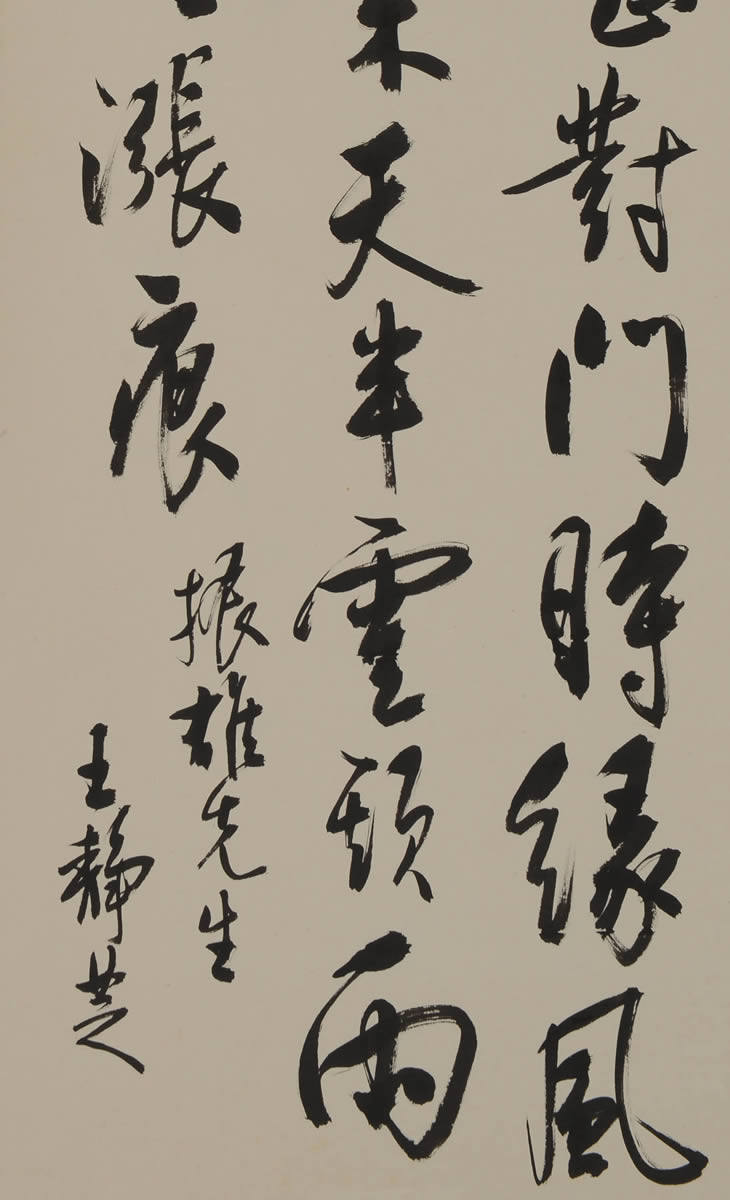 對門時緣風
天半雲頭雨
漲痕
振雄先生
王靜芝